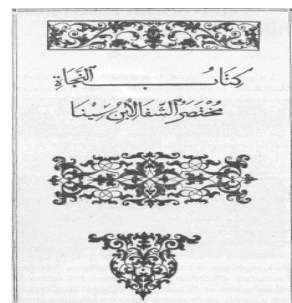 كتاب النجاة
مختصر الشفا لابن سينا